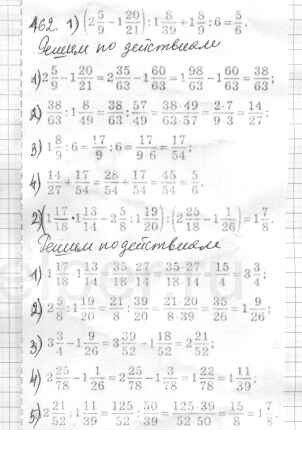 462. 1) (2 5/9 - 1 20/21) : 1 8/39 + 1 8/9 : 6 = 5/6.
Решим по действиям
1) 2 5/9 - 1 20/21 = 2 35/63 - 1 60/63 = 1 98/63 - 1 60/63 = 38/63;
2) 38/63 : 1 8/49 = 38/63 : 57/49 = 38·49/63·57 = 2·7/9·3 = 14/27;
3) 1 8/9 : 6 = 17/9 : 6 = 17/9·6 = 17/54;
4) 14/27 + 17/54 = 28/54 + 17/54 = 45/54 = 5/6.
2) (1 17/18 · 1 13/14 - 2 5/8 : 1 19/20) : (2 25/18 - 1 1/26) = 1 7/8.
Решим по действиям
1) 1 17/18 · 1 13/14 = 35/18 · 27/14 = 35·27/18·14 = 15/4 = 3 3/4;
2) 2 5/8 : 1 19/20 = 21/8 : 39/20 = 21·20/8·39 = 35/26 = 1 9/26;
3) 3 3/4 - 1 9/26 = 3 39/52 - 1 18/52 = 2 21/52;
4) 2 25/78 - 1 1/26 = 2 25/78 - 1 3/78 = 1 22/78 = 1 11/39;
5) 2 21/52 : 1 11/39 = 125/52 : 50/39 = 125·39/52·50 = 15/8 = 1 7/8.